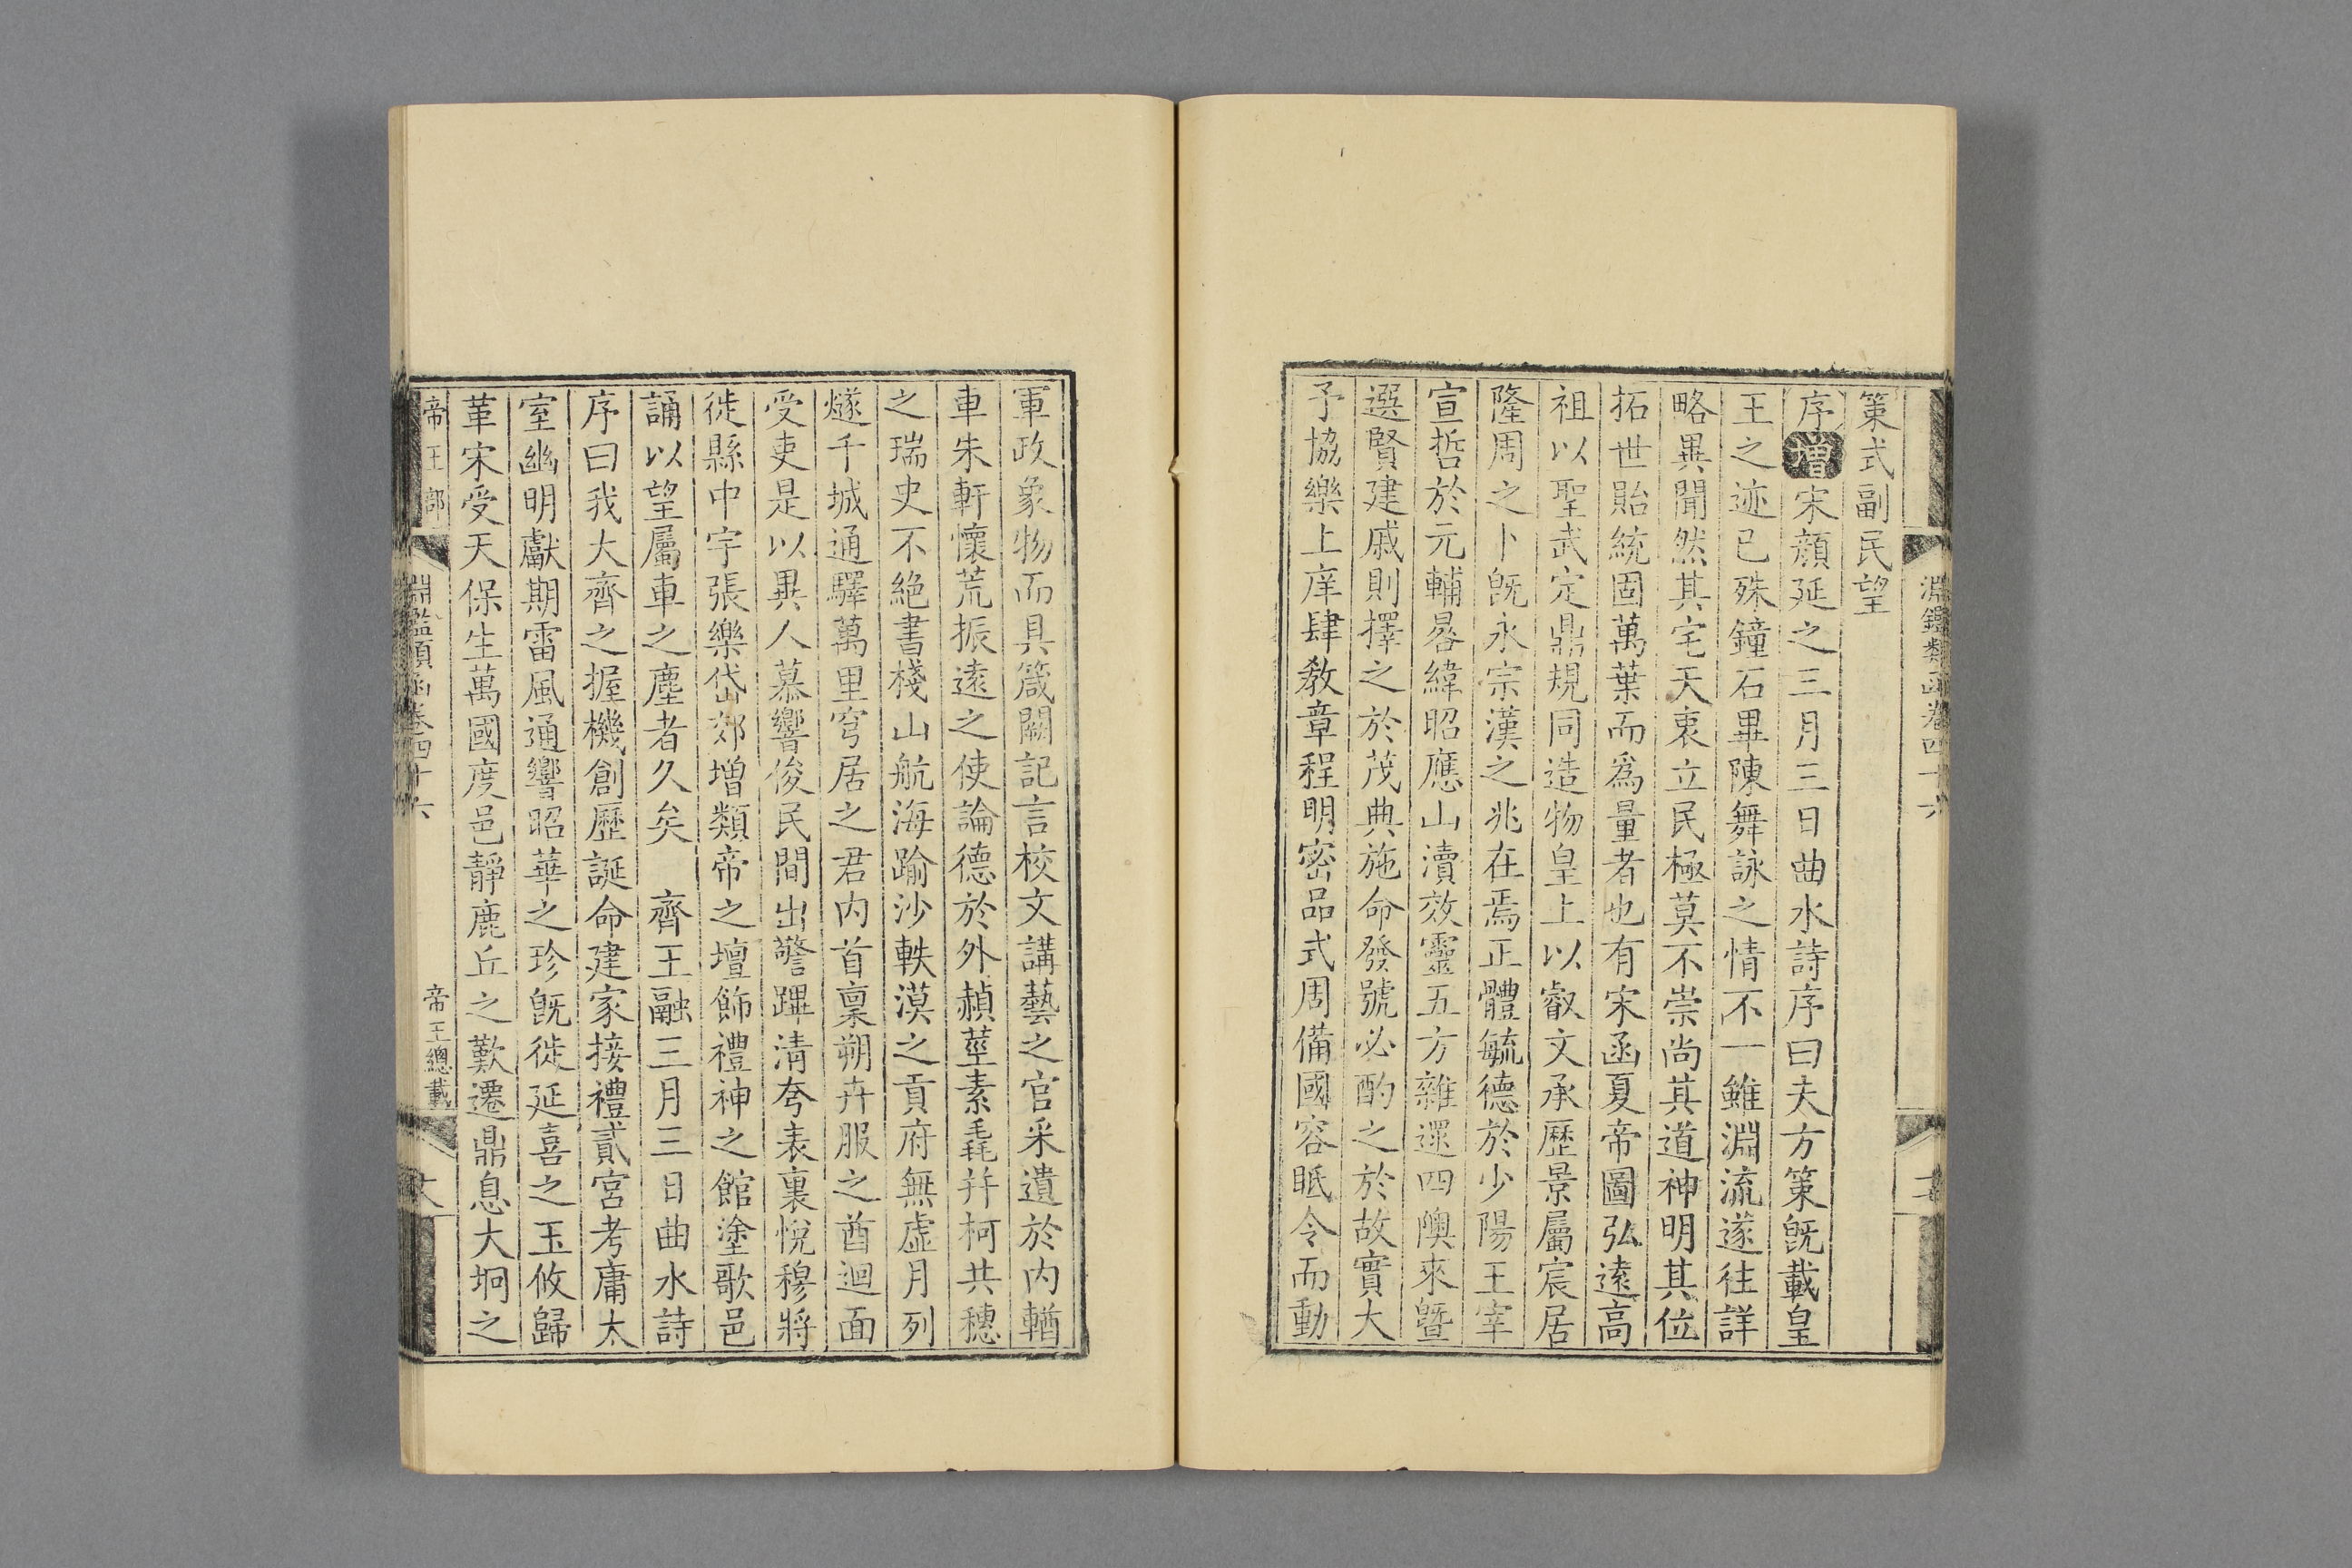 淵鑑類函卷四十六
策式副民望
序增宋顏延之三月三日曲水詩序曰夫方策旣載皇
王之迹已殊鐘石畢陳舞詠之情不一雖淵流遂往詳
略異聞然其宅天衷立民極莫不崇尚其道神明其位
拓世貽統固萬葉而爲量者也有宋函夏帝圖弘遠高
祖以聖武定鼎規同造物皇上以叡文承歷景屬宸居
隆周之卜旣永宗漢之兆在焉正體毓德於少陽王宰
宣哲於元輔晷緯昭應山瀆效靈五方雜遝四隩來暨
選賢建戚則擇之於茂典施命發號必酌之於故實大
予協樂上庠肆敎章程明密品式周備國容眡令而動
軍政象物而具箴闕記言校文講藝之官采遺於內輶
車朱軒懷荒振遠之使論德於外赬莖素毳幷柯共穗
之瑞史不絶書棧山航海踰沙軼漠之貢府無虛月列
燧千城通驛萬里穹居之君內首稟朔卉服之酋迴面
受吏是以異人慕響俊民間出警蹕清夸表裏悅穆將
徙縣中宇張樂岱郊增類帝之壇飾禮神之館塗歌邑
誦以望屬車之塵者久矣　齊王融三月三日曲水詩
序曰我大齊之握機創歷誕命建家接禮貳宮考庸太
室幽明獻期雷風通響昭華之珍旣徙延喜之玉攸歸
革宋受天保生萬國度邑靜鹿丘之歎遷鼎息大坰之
帝王部
淵鑑類函卷四十六
帝王總載